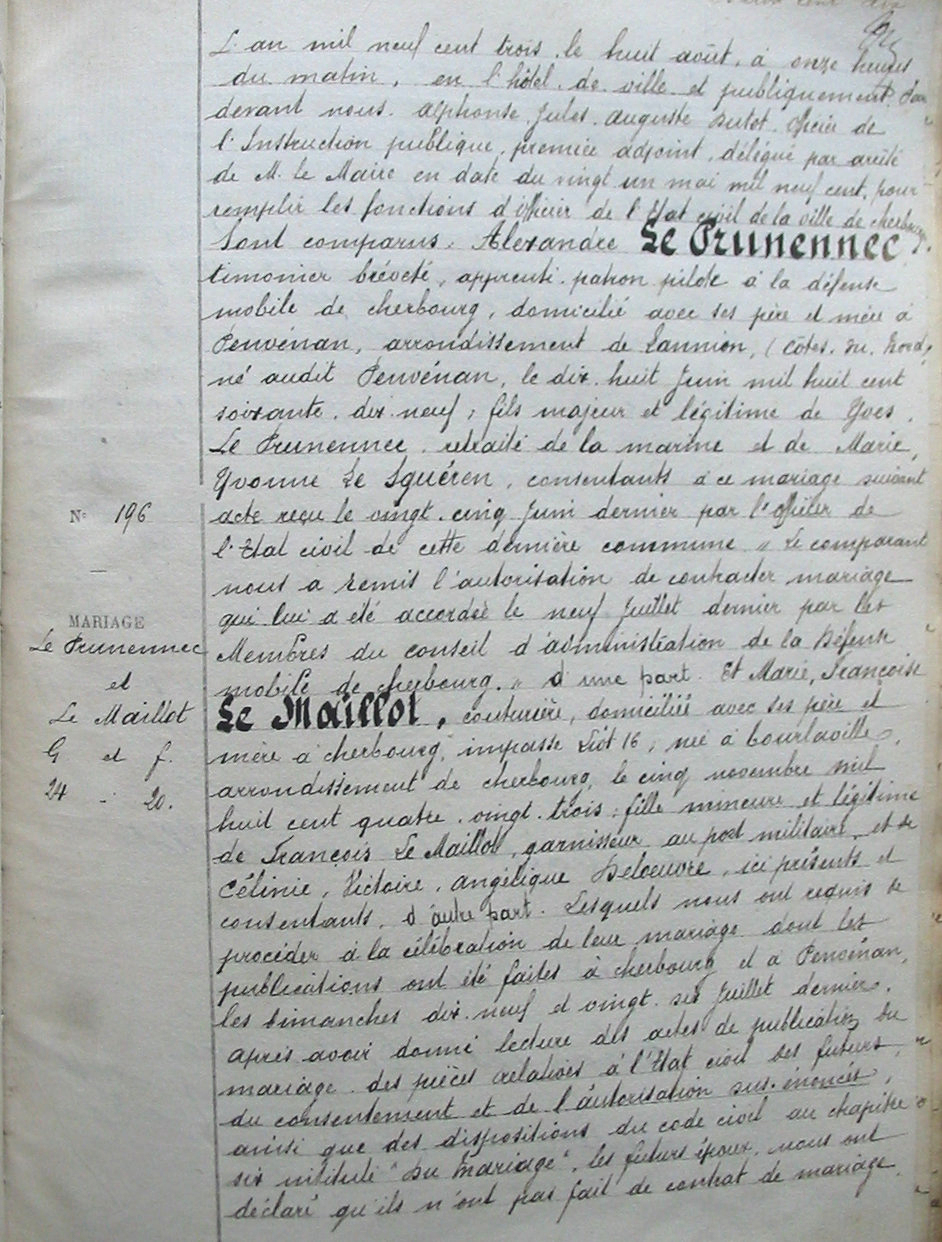 L'an mil neuf cent trois, le huit août, à onze heures
du matin, en l'hôtel de ville et publiquement. Par
devant nous Alphonse Jules Auguste Dutot, Officier de
l'Instruction publique, premier adjoint, délégué par arrêté
de M. le Maire en date du vingt un mai mil neuf cent, pour
remplir les fonctions d'Officier de l'Etat civil de la ville de Cherbourg.
Sont comparus: Alexandre Le Prunennec
timonier bréveté, apprenti patron pilote à la défense
mobile de Cherbourg, domicilié avec ses père et mère à
Penvénan, arrondissement de Lannion, (Côtes-du-Nord,
né audit Penvénan, le dix-huit Juin mil huit cent
soixante-dix-neuf; fils majeur et légitime de Yves
Le Prunennec, retraité de la marine et de Marie,
Yvonne Le Squéren, consentants à ce mariage suivant
N° 196
acte reçu le vingt-cinq Juin dernier par l'Officier de
l'Etat civil de cette dernière commune "Le comparant
nous a remis l'autorisation de contracter mariage
qui lui a été accordée le neuf Juillet dernier par les
MARIAGE
Le Prunennec
et
Le Maillot
G et f.
24 - 20.
Membres du conseil d'administration de la Défense
mobile de Cherbourg." d'une part. Et Marie, Françoise
Le Maillot, couturière, domiciliée avec ses père et
mère à Cherbourg, impasse Liot 16; née à Tourlaville,
arrondissement de Cherbourg, le cinq novembre mil
huit cent quatre-vingt-trois; fille mineure et légitime
de François Le Maillot, garnisseur au port militaire, et de
Célinie, Victoire, Angélique Deloeuvre, ici présents et
consentants, d'autre part. Lesquels nous ont requis de
procéder à la célébration de leur mariage dont les
publications ont été faites à Cherbourg et à Penvénan,
les dimanches dix-neuf et vingt-six Juillet dernier.
après avoir donné lecture des actes de publication du
mariage des pièces relatives à l'Etat civil des futurs,
du consentement et de l'autorisation sus-énoncés,
ainsi que des dispositions du code civil au chapitre
six intitulé "Du Mariage", les futurs époux nous ont
déclaré qu'ils n'ont pas fait de contrat de mariage.